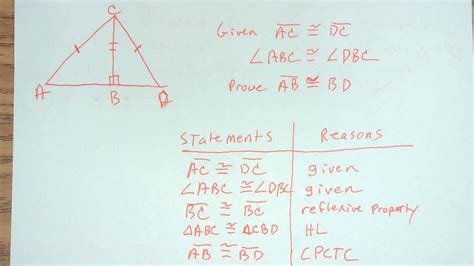 C
A B D
Given AC ≅ DC
∠ABC ≅ ∠DBC
Prove AB ≅ BD
Statements Reasons
AC ≅ DC given
∠ABC ≅ ∠DBC given
BC ≅ BC reflexive Property
△ABC ≅ △CBD HL
AB ≅ BD CPCTC